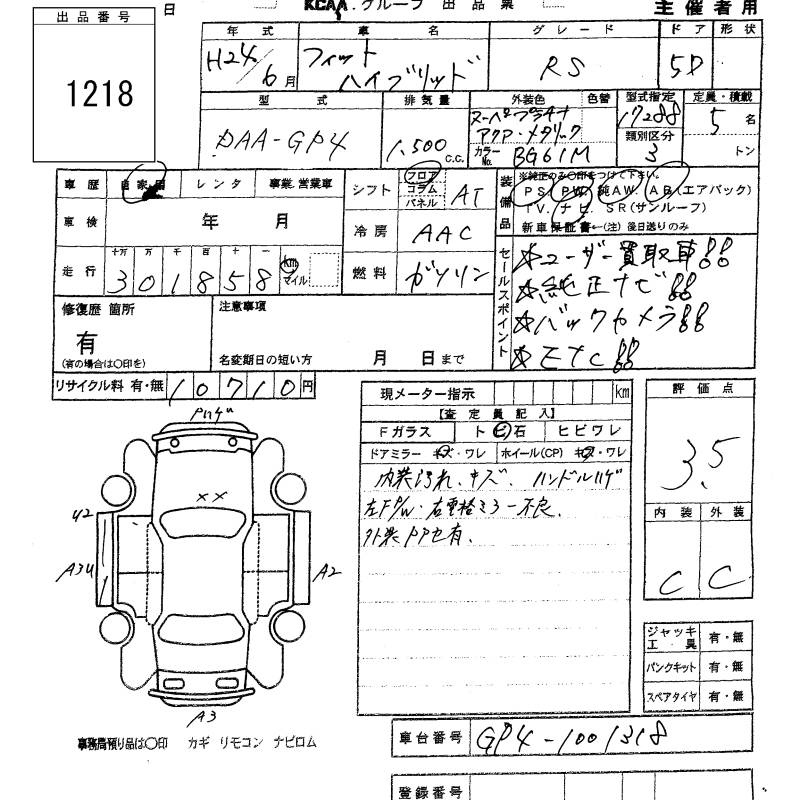 日 KCAA.グループ 出品票 主催者用
出品番号
1218
年式 車名 グレード ドア 形状
H24/6月 フィット ハイブリッド RS 5D
型式 排気量 外装色 色替 型式指定 定員・積載
DAA-GP4 1,500 C.C. アクア・メタリック 17288 5名
カラーNo. BG61M 類別区分 3 トン
車歴 自家用 レンタ 事業.営業車 シフト フロア コラム パネル AT
装備品 ※純正のみ○印をつけて下さい。
PS. PW. 純AW. AB(エアバック)
TV. ナビ. SR(サンルーフ)
新車保証書←(注)後日送りのみ
車検 年 月 冷房 AAC
走行 十万 万 千 百 十 一
301858 km マイル 燃料 ガソリン
セールスポイント
☆ユーザー買取車!!
☆純正ナビ!!
☆バックカメラ!!
☆ETC!!
修復歴 箇所 注意事項
有
(有の場合は○印を) 名変期日の短い方 月 日まで
リサイクル料 有・無 10710円
現メーター指示 km 評価点
【査定員記入】
Fガラス トビ石 ヒビワレ
ドアミラー キズ・ワレ ホイール(CP) キズ・ワレ
3.5
内装汚れ、キズ. ハンドルハゲ
左FP/W・右電格ミラー不良.
外装PP色有.
内装 外装
C C
Pハゲ
××
U2
A3U
A2
A3
ジャッキ 工・具 有・無
パンクキット 有・無
スペアタイヤ 有・無
事務局預り品は○印 カギ リモコン ナビロム
車台番号 GP4-1001318
登録番号